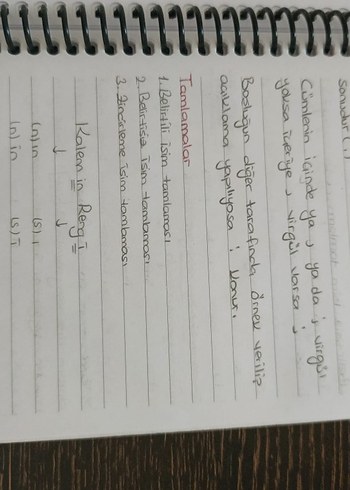 sorusdur (.)
Cümlenin içinde ya, ya da ; virgül
yoksa içeriye , virgül varsa ;
Boşluğun diğer tarafında örnek verilip
açıklama yapılıyosa : konur.
Tamlamalar
1. Belirtili isim tamlaması
2. Belirtisiz isim tamlaması
3. Zincirleme isim tamlaması
Kalem in Reng i
↓ ↓
(n)ın (s)ı
(n)in (s)i